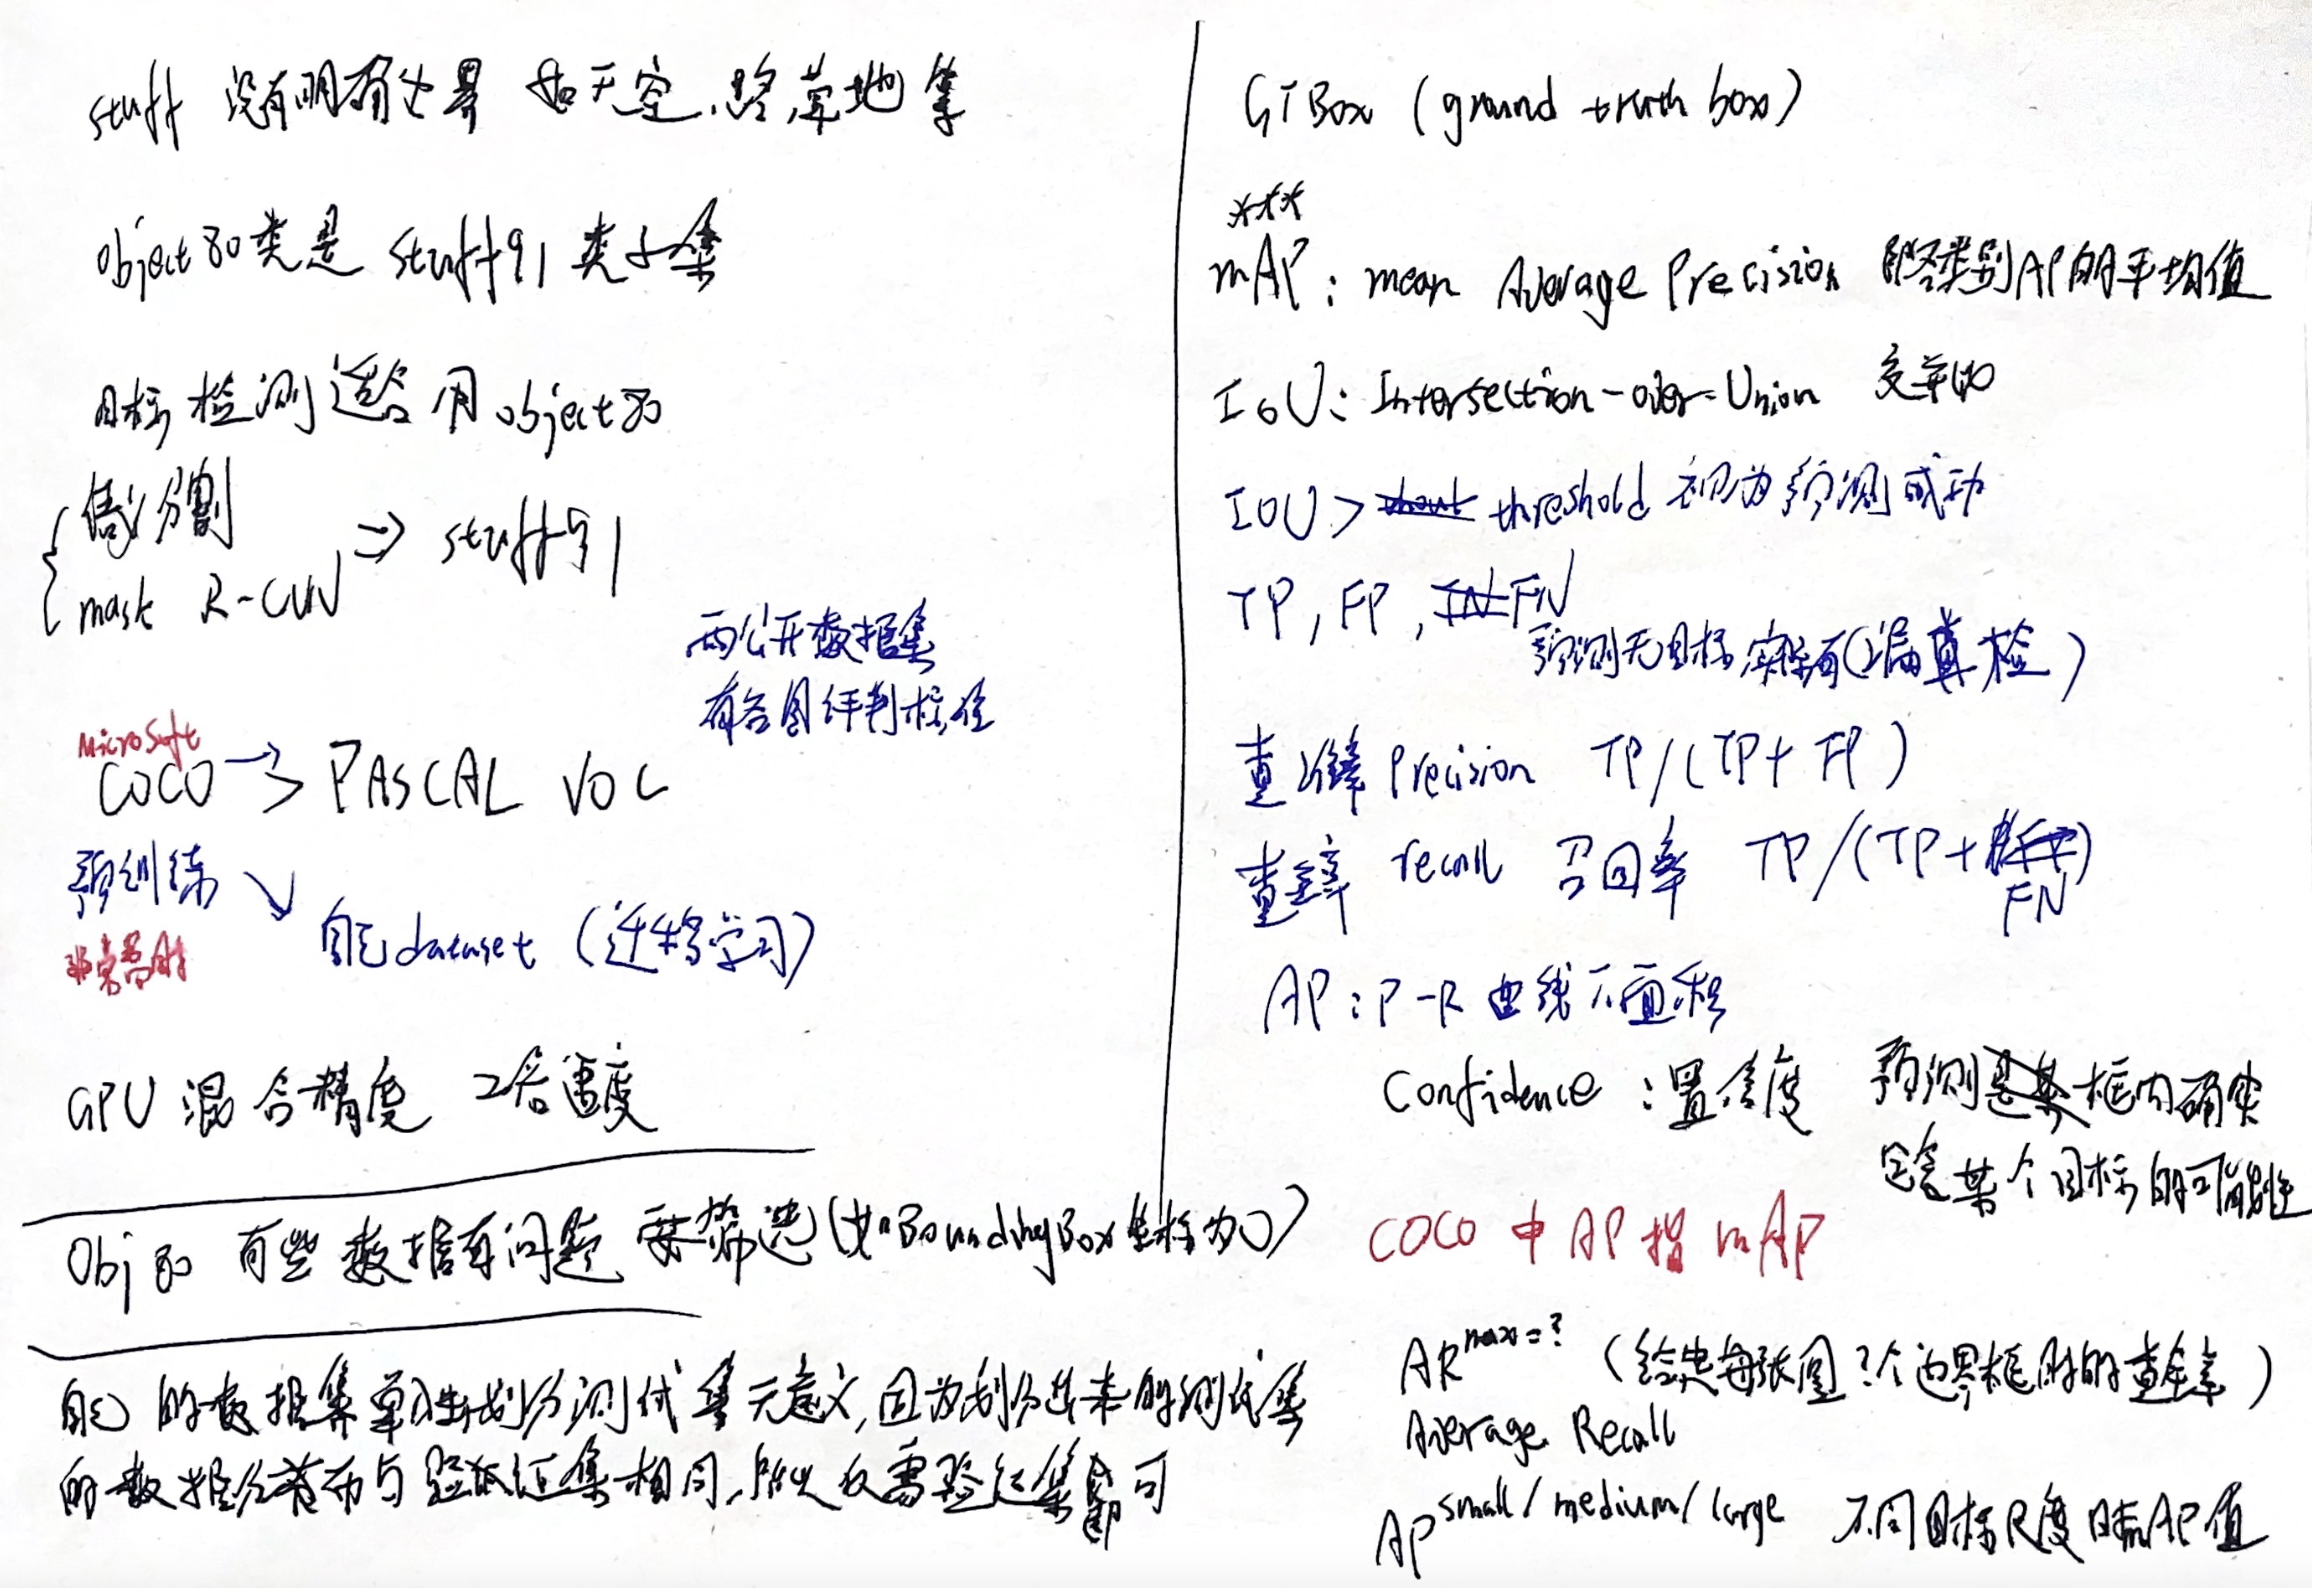 stuff 没有明确边界 如天空,路,草地等
object 80类是 stuff 91 类子集
目标检测适合用 object 80
语义分割
mask R-CNN
⇒ stuff 91
两公开数据集
有各自评判标准
Microsoft
COCO → PASCAL VOC
预训练
非常费时
自己dataset (迁移学习)
GPU 混合精度 2倍速度
Obj 80 有些数据有问题 要筛选(如BoundingBox坐标为0)
自己的数据集单独划分测试集无意义,因为划分出来的测试集
的数据分布与验证集相同,所以仅需验证集即可
GT Box (ground truth box)
***
mAP: mean Average Precision 即各类别AP的平均值
IoU: Intersection-over-Union 交并比
IOU > threshold 视为预测成功
TP, FP, FN
预测无目标 实际有(漏检)
查准率 Precision TP/(TP+FP)
查全率 recall 召回率 TP/(TP+FN)
AP: P-R 曲线下面积
Confidence: 置信度 预测框内确实
是某个目标的可能性
COCO 中 AP 指 mAP
AR^max=? (给定每张图?个边界框时的查全率)
Average Recall
AP^small/medium/large 不同目标尺度时的AP值